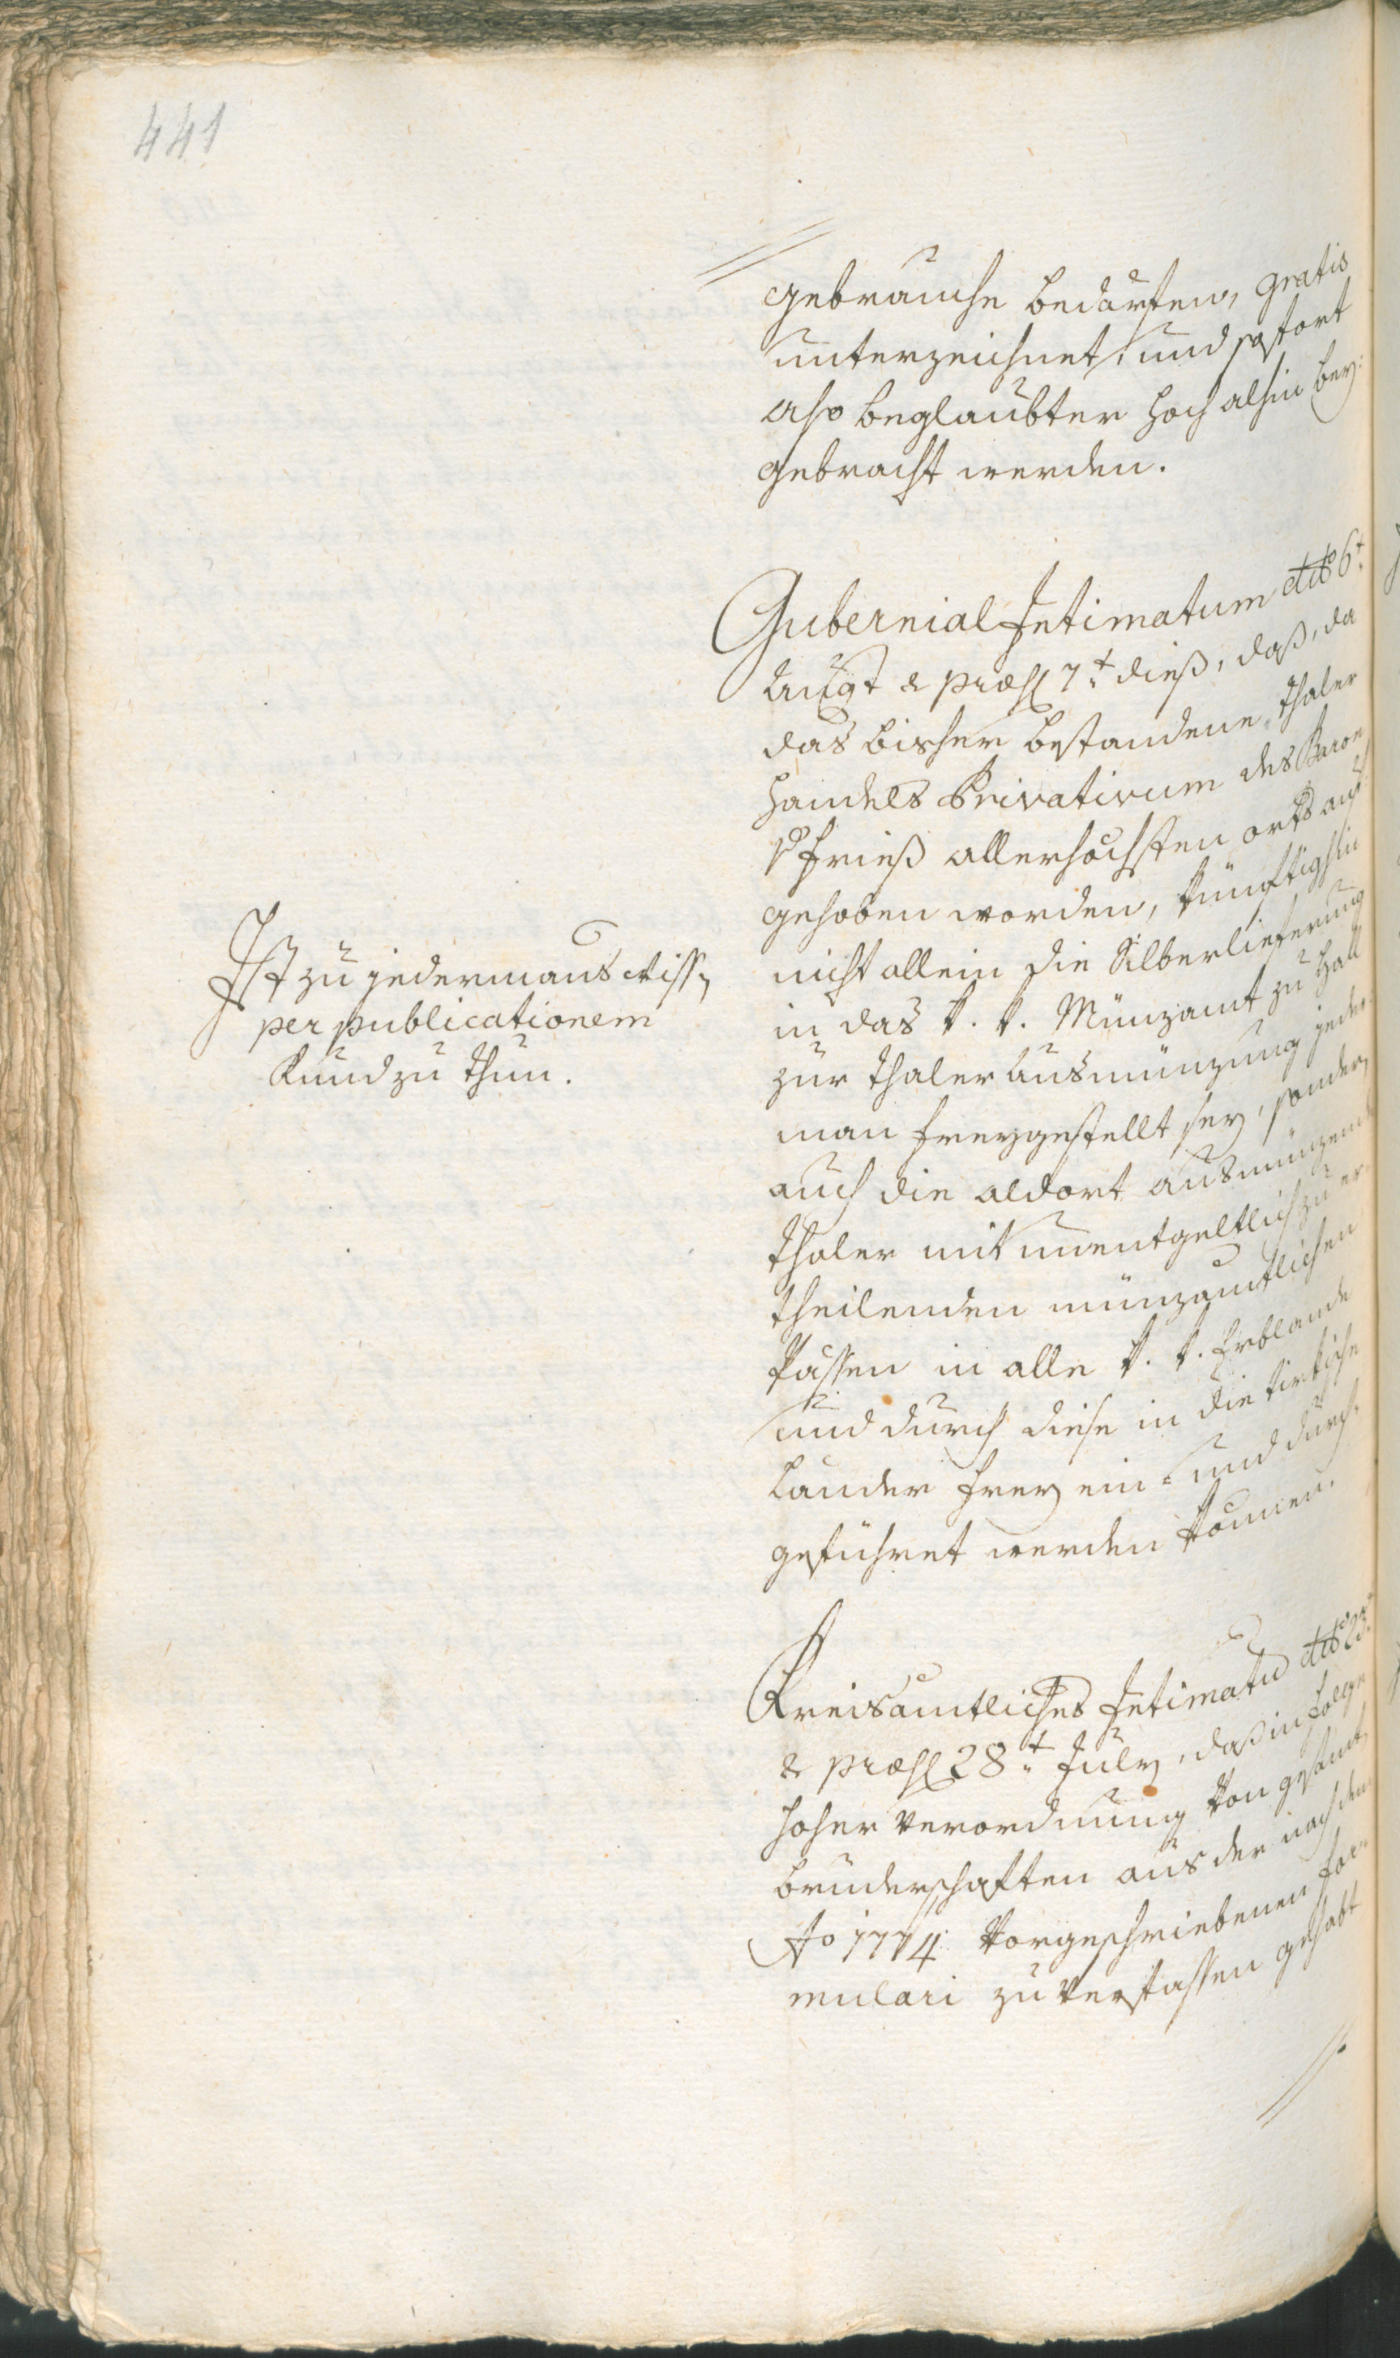 441
gebrauche bedarfen, gratis
unterzeichnet, und sofort
also beglaubter hoch alhin bey¬
gebracht werden.
Gubernial Intimatum ddto 6t.
Augst & præs 7t. dieß, daß, da
das bisher bestandene Thaler
Handels Privativum des Baron
v Frieß allerhöchsten orts auf
gehoben worden, künftighin
nicht allein die Silberlieferung
in das k. k. Münzamt zu Hall
zur Thaler Ausmünzung jeder
man freygestellt sey, sondern
auch die aldort ausmünzend
Thaler mit unentgeltlich zu er
theilenden münzamtlichen
Pässen in alle k. k. Erblande
und durch diese in die türkische
Länder frey ein- und durch¬
geführet werden können.
Ist zu jedermans Wiss
per publicationem
Kund zu thun.
Kreisamtliches Intimatu ddto 23t
& præs 28t. July, daß in Folge
hoher Verordnung von gesamt
bruderschaften aus der nach dem
Ao 1774 vorgeschriebenen For¬
mulari zu verfassen gehabt